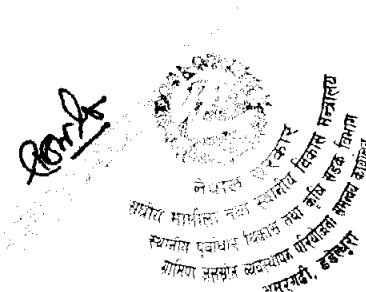 नेपाल सरकार
संघीय मामिला तथा स्थानीय विकास मन्त्रालय
स्थानीय पूर्वाधार विकास तथा कृषि सडक विभाग
ग्रामिण जलस्रोत व्यवस्थापन परियोजना समन्वय कार्यालय
अमरगढी, डडेल्धुरा